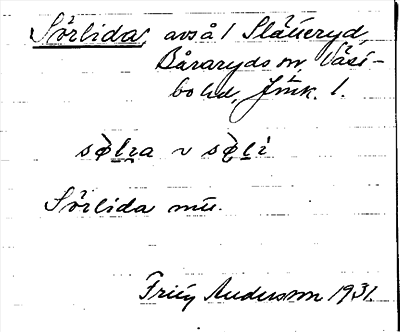 Sörlida, avs å 1 Slätteryd,
Båraryds sn, Väst-
bo hd, Jönk. l.
sø̀lra v sø̀li
Sörlida mu.
Friey Andersson 1931.